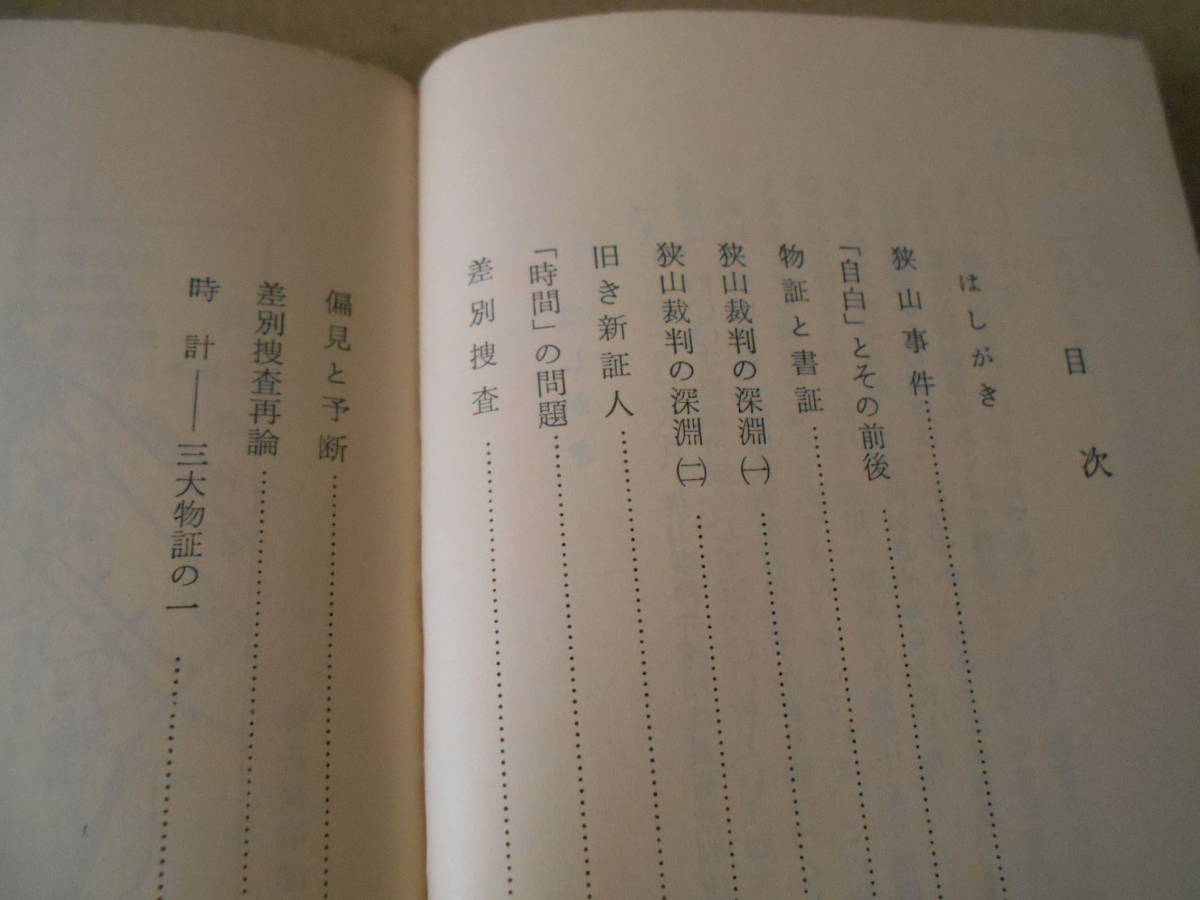 目次
はしがき
狭山事件……………………
「自白」とその前後……………………
物証と書証……………………
狭山裁判の深淵㈠……………………
狭山裁判の深淵㈡……………………
旧き新証人……………………
「時間」の問題……………………
差別捜査……………………
偏見と予断……………………
差別捜査再論……………………
時計——三大物証の一……………………